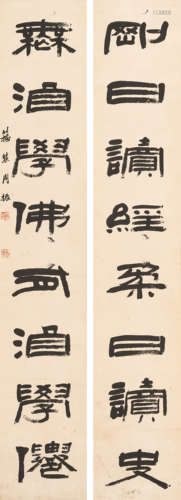 剛日讀經柔日讀史
無酒學佛有酒學僊